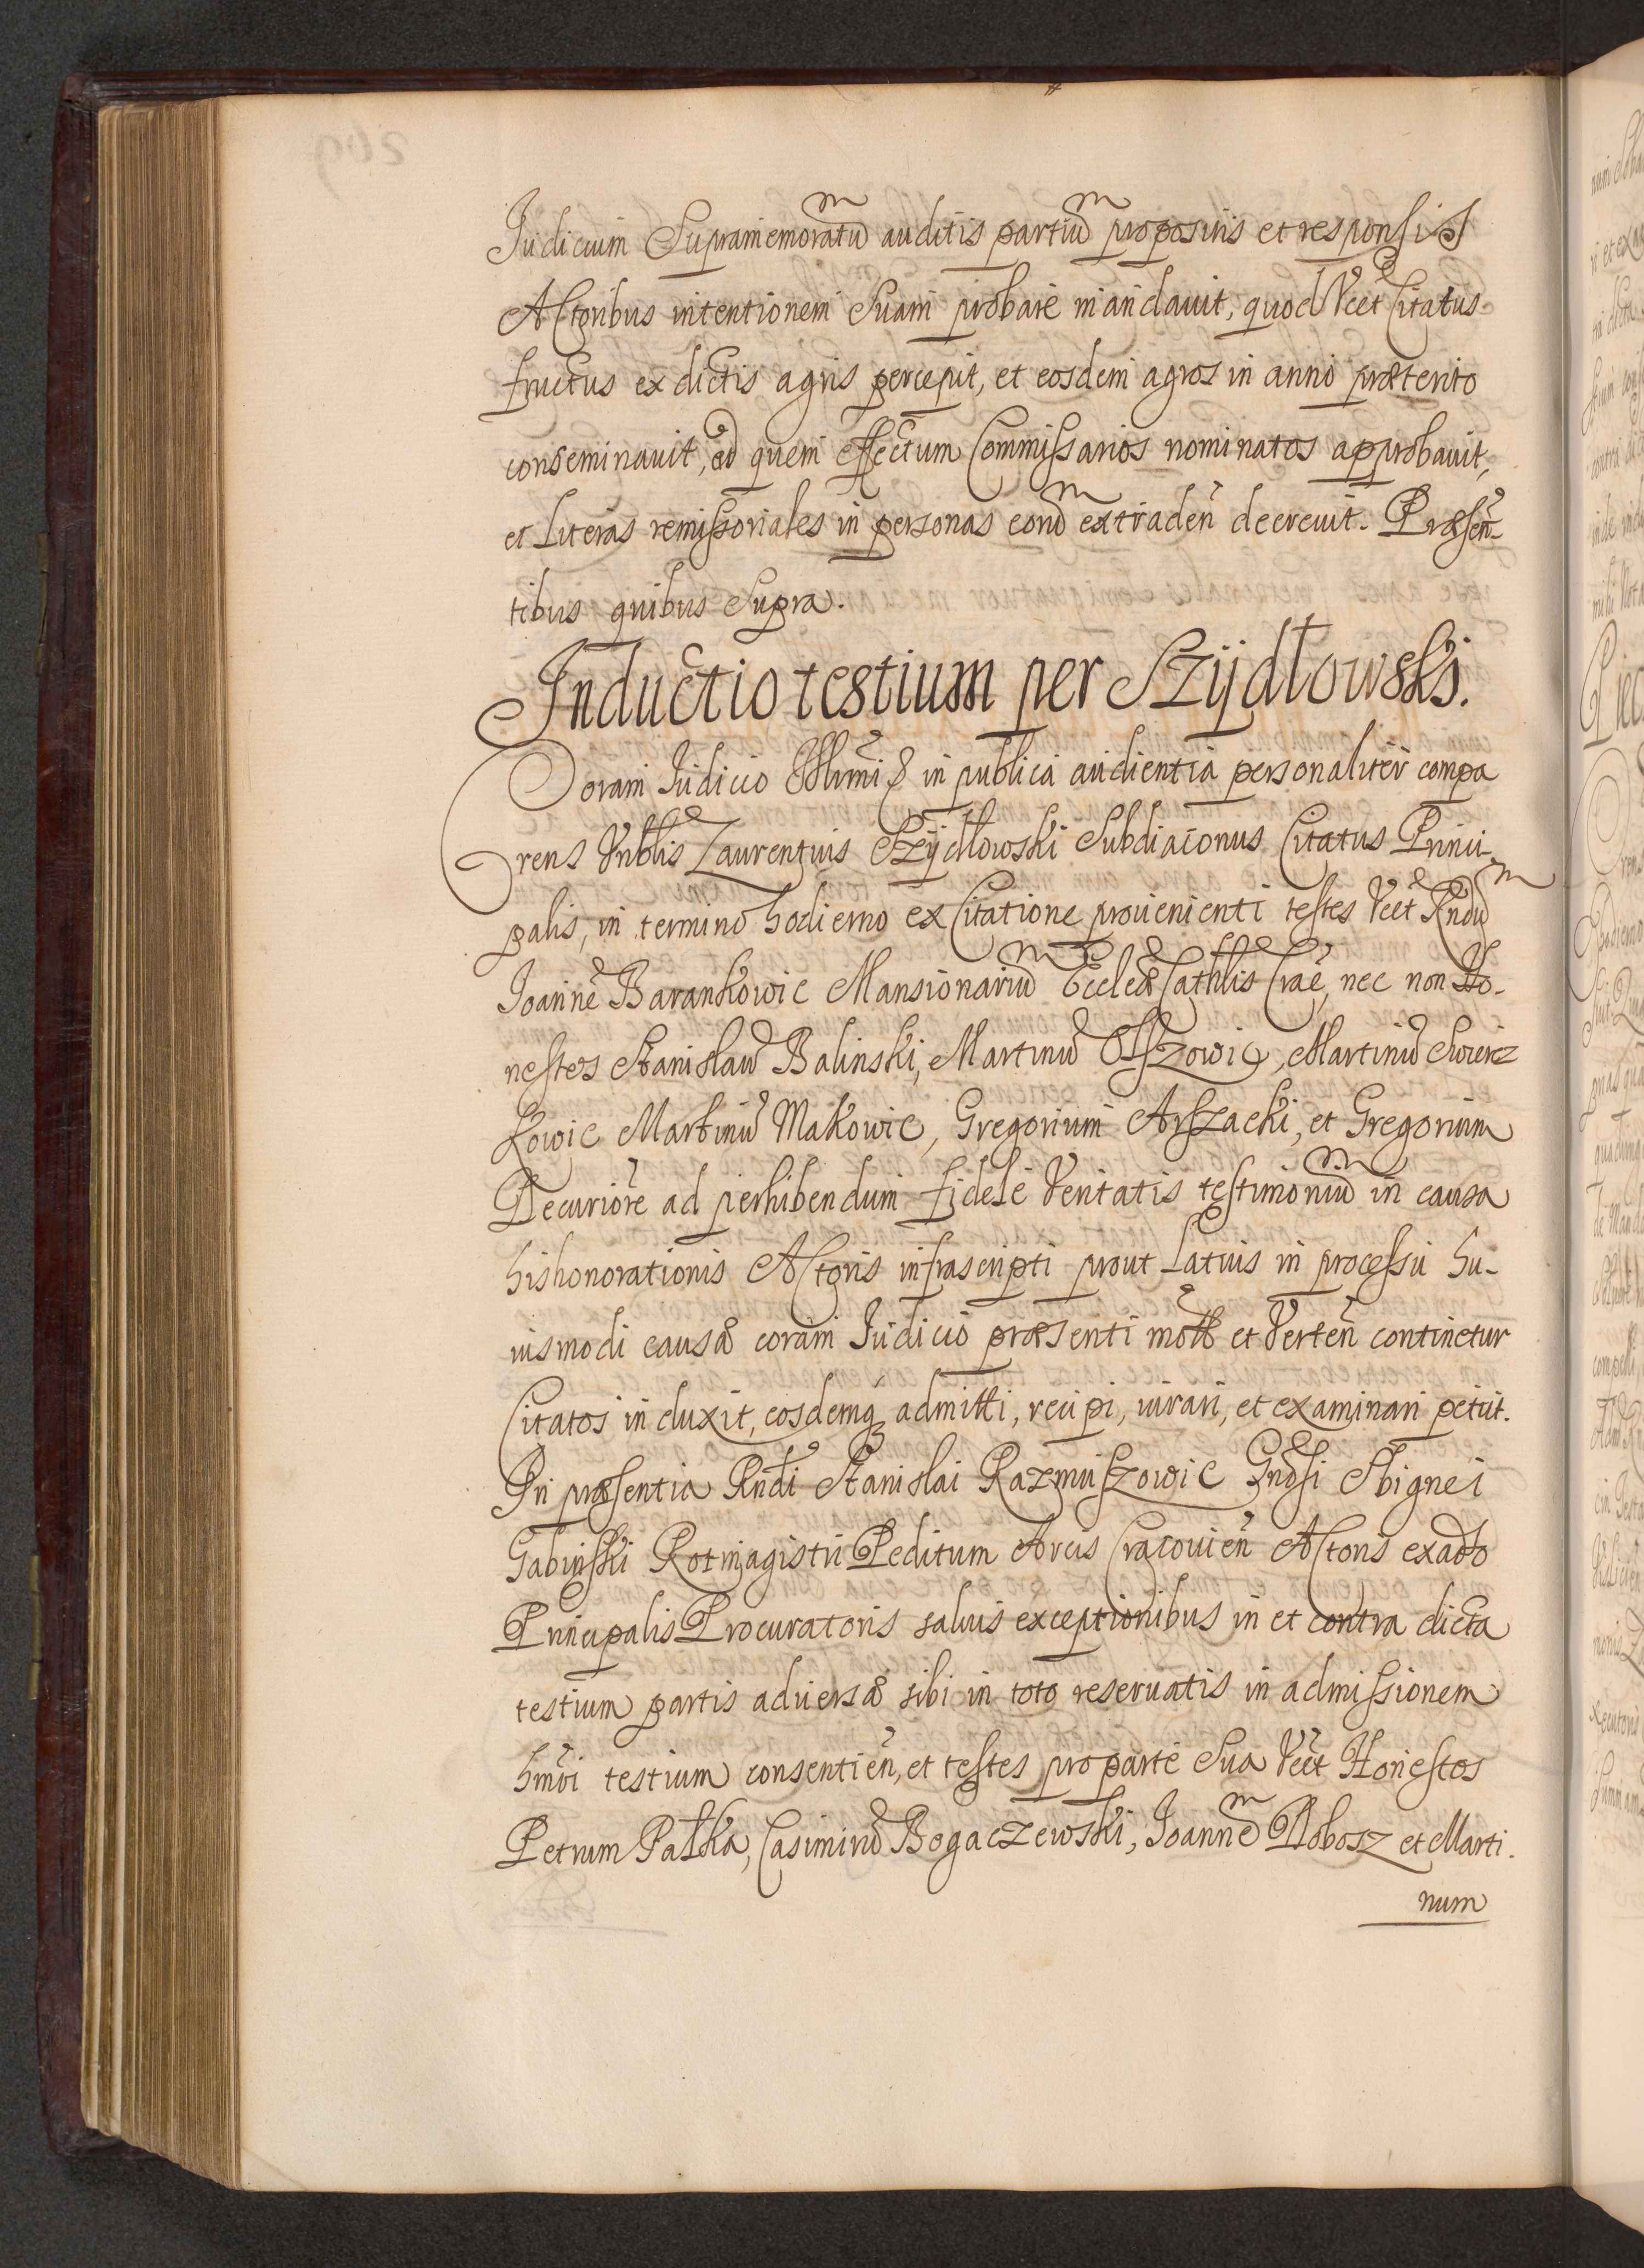 Judicium Supramemoratũ auditis partiũ propositis et responsis
Actoribus intentionem Suam probare mandauit, quod Vcet Citatus
fructus ex dictis agris percepit, et eosdem agros in anno præterito
conseminauit, ad quem effectum Commissarios nominatos approbauit,
et Literas remissoriales in personas eorũ extraden̄ decreuit. Præsen-
tibus quibus Supra.
Inductio testium per Szÿdłowski.
Coram Judicio Illrmi & in publica audientia personaliter compa
rens Vnblis Laurentius Szÿdłowski Subdiaconus Citatus Princi-
palis, in termino hodierno ex Citatione prouenienti testes Vcet Rndũ
Joannē Barankowic Mansionariũ Eccleæ Cathlis Craē, nec non Ho-
nestos Stanisłaũ Balinski, Martinũ Osszowic, Martinũ Swierz
kowic Martinũ Makowic, Gregorium Arszacki, et Gregorium
Decuriōre ad perhibendum fidelē Veritatis testimoniũ in causa
hishonorationis Actoris infrascripti prout Latius in processu hu-
iusmodi causæ coram Judicio præsenti mottæ et Verten̄ continetur
Citatos induxit, eosdemq admitti, recipi, iurari, et examinari petiit.
In præsentia Rndi Stanislai Razmuszowic Gnosi Sbignei
Gabinski Rotmagistri Peditum Arcis Cracouien̄ Actoris ex adō
Principalis Procuratoris saluis exceptionibus in et contra dicta
testium partis aduersæ sibi in toto reseruatis in admissionem
hmōi testium consentien̄, et testes pro parte Sua Vcet Honestos
Petrum Pałka, Casimirũ Bogaczewski, Joannē Dobosz et Marti-
num